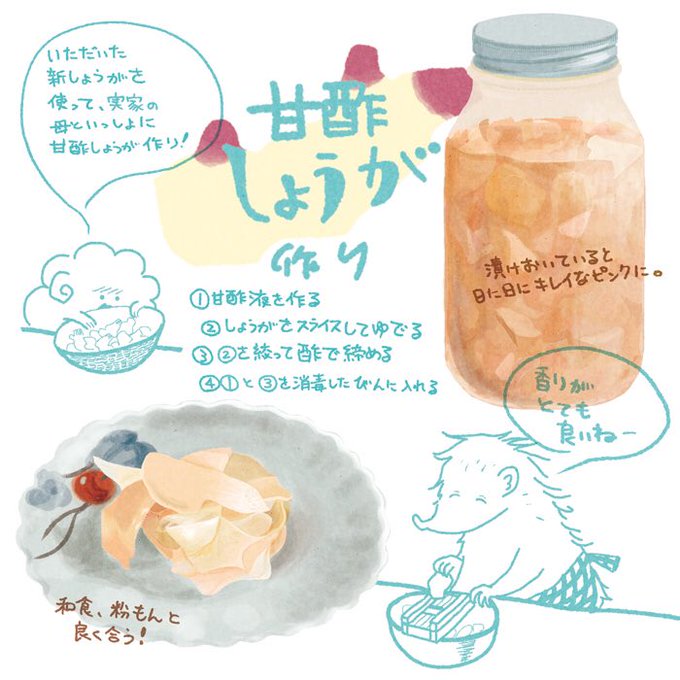 いただいた
新しょうがを
使って、実家の
母といっしょに
甘酢しょうが作り!
甘酢
しょうが
作り
①甘酢液を作る
②しょうがをスライスしてゆでる
③②を絞って酢で締める
④①と③を消毒したびんに入れる
漬けおいていると
日に日にキレイなピンクに。
香りが
とても
良いねー
和食、粉もんと
良く合う!